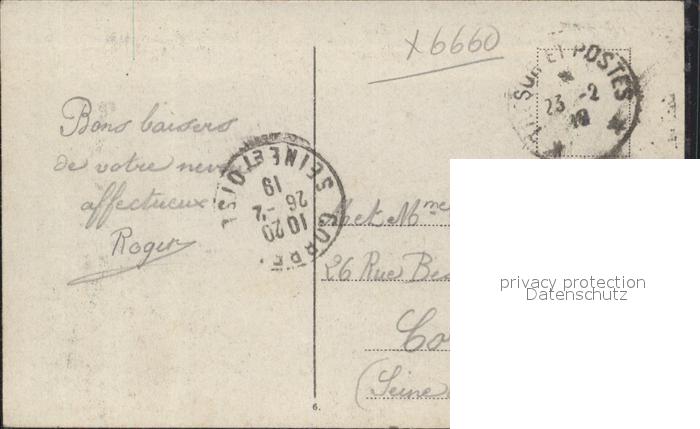 x6660
TRÉSOR ET POSTES
23 -2
19
Bons baisers
de votre neveu
affectueux
Roger
SEINE ET OISE
19
26 -2
10 20
M et Mme
26 Rue Bes
Co
(Seine
6.
privacy protection
Datenschutz